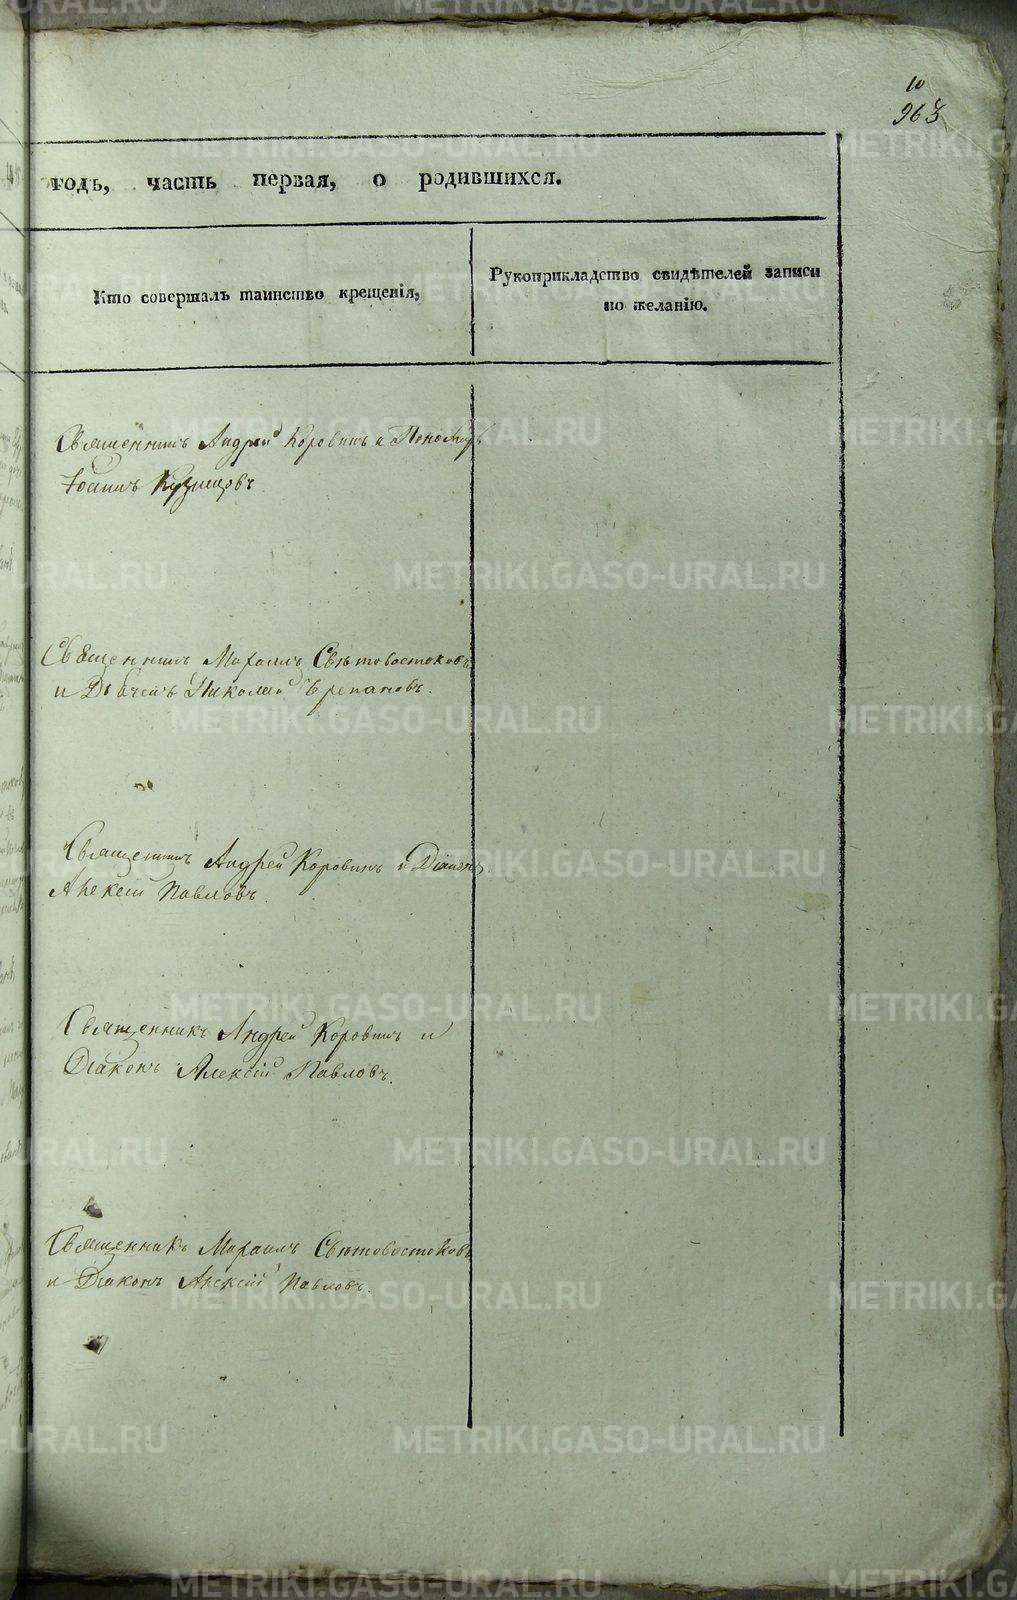 10
963
годъ, часть первая, о родившихся.
Кто совершалъ таинство крещенія,
Рукоприкладство свидѣтелей записи
по желанію.
Священникъ Андрей Коровинъ и Пономарь
Іоаннъ Кузнецовъ
Священникъ Михаилъ Свѣтовостоковъ
и Дьячекъ Николай Черепановъ.
Священникъ Андрей Коровинъ и Діаконъ
Алексій Павловъ.
Священникъ Андрей Коровинъ и
Діаконъ Алексій Павловъ.
Священникъ Михаилъ Свѣтовостоковъ
и Діаконъ Алексій Павловъ.
METRIKI.GASO-URAL.RU